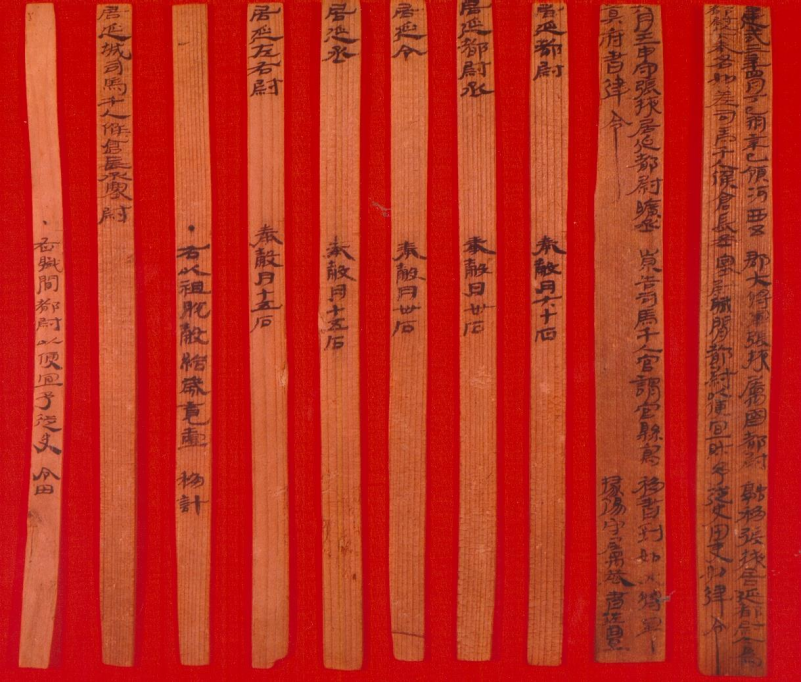 建武三年四月丁巳朔辛巳領河西五郡大將軍張掖屬國都尉融移張掖居延都尉今為都
尉以下奉各如差司馬千人候倉長丞塞尉職閒都尉以便宜財予從史田吏如律令
六月壬申守張掖居延都尉曠丞崇告司馬千人官謂官縣寫移書到如大將軍
莫府書律令 掾陽守屬恭書佐豐
居延都尉 奉穀月六十石
居延都尉丞 奉穀月卅石
居延令 奉穀月卅石
居延丞 奉穀月十五石
居延左右尉 奉穀月十五石
·右以祖脫穀給歲竟壹移計
居延城司馬千人候倉長丞塞尉
·右職閒都尉以便宜予從史令田